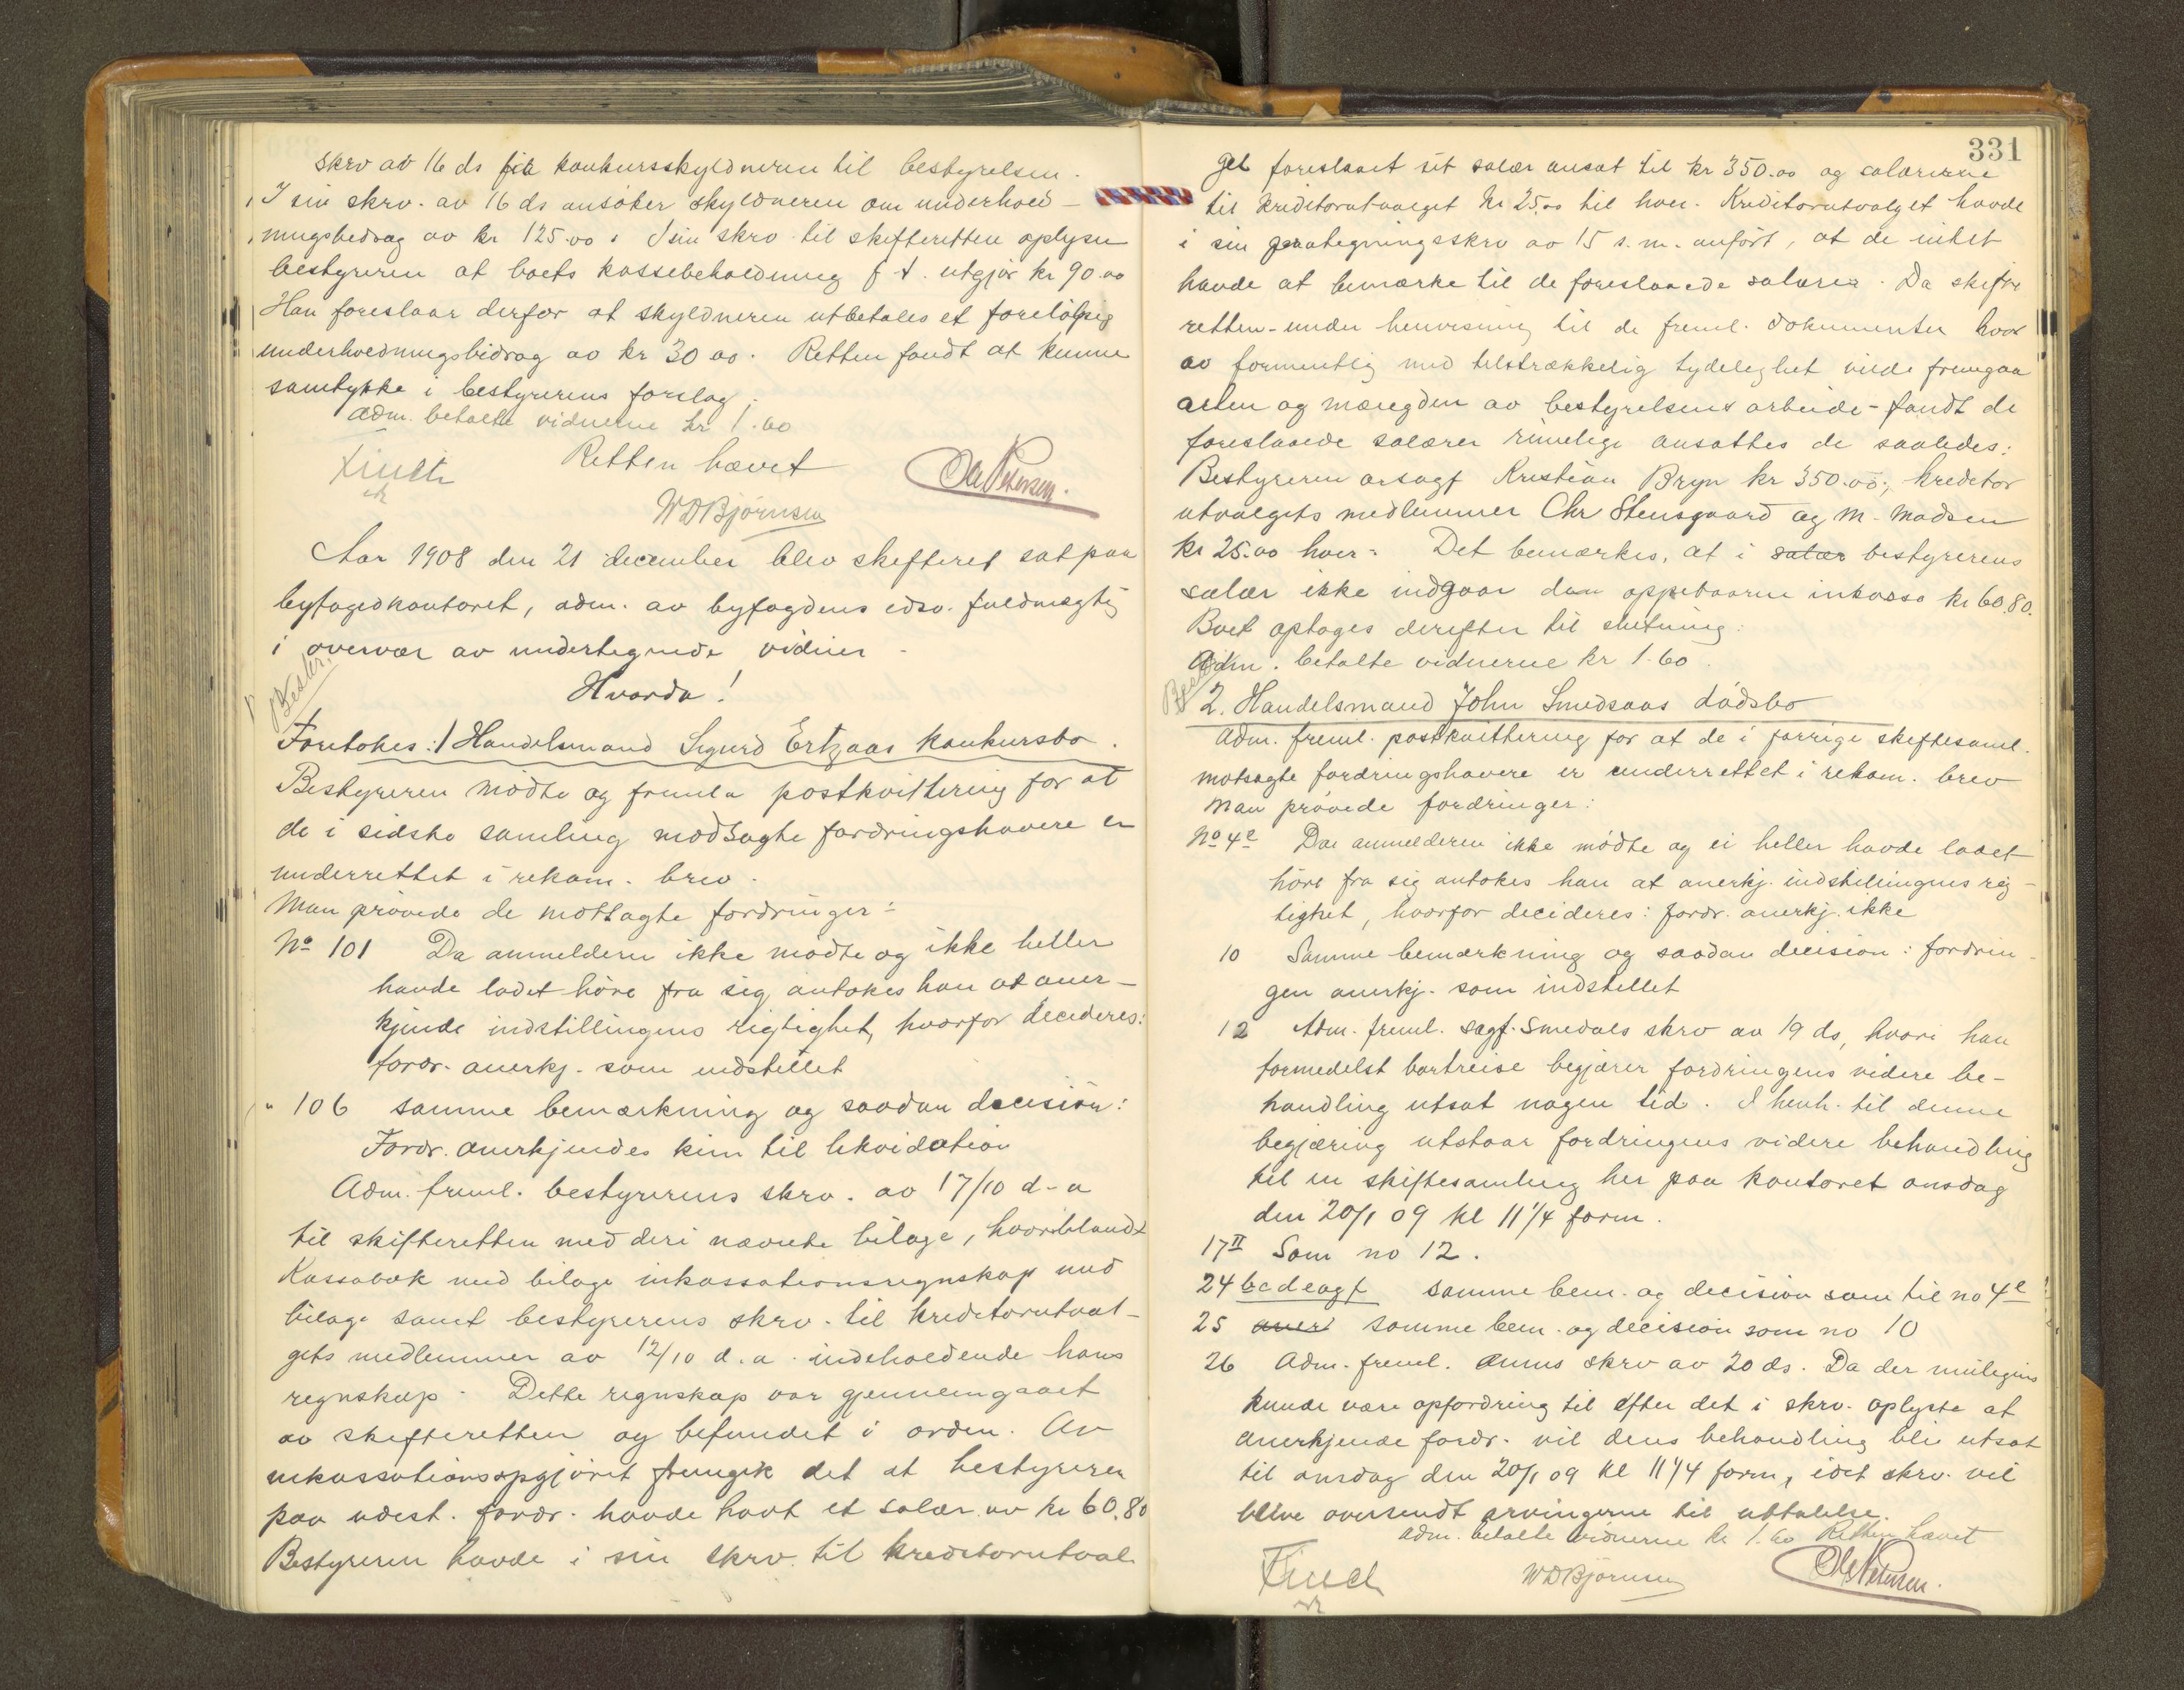 skrv av 16 ds fra konkursskyldneren til bestyrelsen.
I sin skrv. av 16 ds ansøker skyldneren om underhold-
ningsbedrag av kr 125.00. I sin skrv til skifteretten oplyser
bestyreren at boets kassebeholdning f t. utgjør kr 90.00
Han foreslaar derfor at skyldneren utbetales et foreløpig
underholdningsbidrag av kr 30.00. Retten fandt at kunne
samtykke i bestyrerens forslag.
Adm. betalte vidnerne kr 1.60
Retten hævet
Finch
Ole Petersen.
W D Bjørnsen
Aar 1908 den 21 december blev skifteret sat paa
byfogedkontoret, adm. av byfogdens edsv. fuldmægtig
i overvær av undertegnede vidner -
Hvorda!
Foretokes: 1 Handelsmand Sigurd Ertzaas konkursbo.
Bestyreren mødte og fremla postkvittering for at
de i sidste samling modsagte fordringshavere er
underrettet i rekom. brev.
Man prøvede de motsagte fordringer:
No 101 Da anmelderen ikke mødte og ikke heller
havde ladet høre fra sig antokes han at aner-
kjende indstillingens rigtighet, hvorfor decideres:
fordr. anerkj. som indstillet
" 106 samme bemærkning og saadan decision:
Fordr. anerkjendes kun til likvidation
Adm. freml. bestyrerens skrv. av 17/10 d-a
til skifteretten med deri nævnte bilage, hvoriblandt
Kassabok med bilage inkassationsregnskap med
bilage samt bestyrerens skrv. til kreditorutval-
gets medlemmer av 12/10 d.a. indeholdende hans
regnskap. Dette regnskap var gjennemgaaet
av skifteretten og befundet i orden. Av
inkassationsopgjøret fremgik det at bestyreren
paa udest. fordr. havde havt et salær av kr 60.80
Bestyreren havde i sin skrv. til kreditorutval-
331
get foreslaaet sit salær ansat til kr 350.00 og salærerne
til kreditorutvalget kr 25.00 til hver. Kreditorutvalget havde
i sin paategningsskrv av 15 s.m. anført, at de intet
havde at bemærke til de foreslaaede salærer. Da skifte
retten - under henvisning til de freml. dokumenter hvor
av formentlig med tilstrækkelig tydelighet vilde fremgaa
arten og mængden av bestyrelsens arbeide - fandt de
foreslaaede salærer rimelige ansattes de saaledes:
Bestyreren orsagf Kristian Bryn kr 350.00, kreditor
utvalgets medlemmer Chr Stensgaard og M. Madsen
kr 25.00 hver. Det bemærkes, at i salær bestyrerens
salær ikke indgaar den oppebaarne inkasso kr 60.80.
Boet optages derefter til slutning.
Adm. betalte vidnerne kr 1.60.
2. Handelsmand John Smedsaas dødsbo
Adm. freml. postkvittering for at de i forrige skiftesaml.
motsagte fordringshavere er underrettet i rekom. brev
Man prøvede fordringer:
No 4e Da anmelderen ikke mødte og ei heller havde ladet
høre fra sig antokes han at anerkj. indstillingens rig-
tighet, hvorfor decideres: fordr. anerkj. ikke
10 Samme bemærkning og saadan decision: fordrin-
gen anerkj. som indstillet
12 Adm. freml. sagf. Smedals skrv av 19 ds, hvori han
formedelst bortreise begjærer fordringens videre be-
handling utsat nogen tid. I henh. til denne
begjæring utstaar fordringens videre behandling
til en skiftesamling her paa kontoret onsdag
den 20/1 09 kl 11 1/4 form.
17II Som no 12.
24 bcdeogf samme bem. og decision som til no 4e
25 aner samme bem. og decision som no 10
26 Adm. freml. skrv av 20 ds. Da der muligens
kunde være opfordring til efter det i skrv. oplyste at
anerkjende fordr. vil dens behandling bli utsat
til onsdag den 20/1 09 kl 11 1/4 form, idet skrv. vil
blive oversendt arvingerne til uttalelse.
Adm. betalte vidnerne kr 1.60 Retten hævet
Finch
W D Bjørnsen
Ole Petersen.